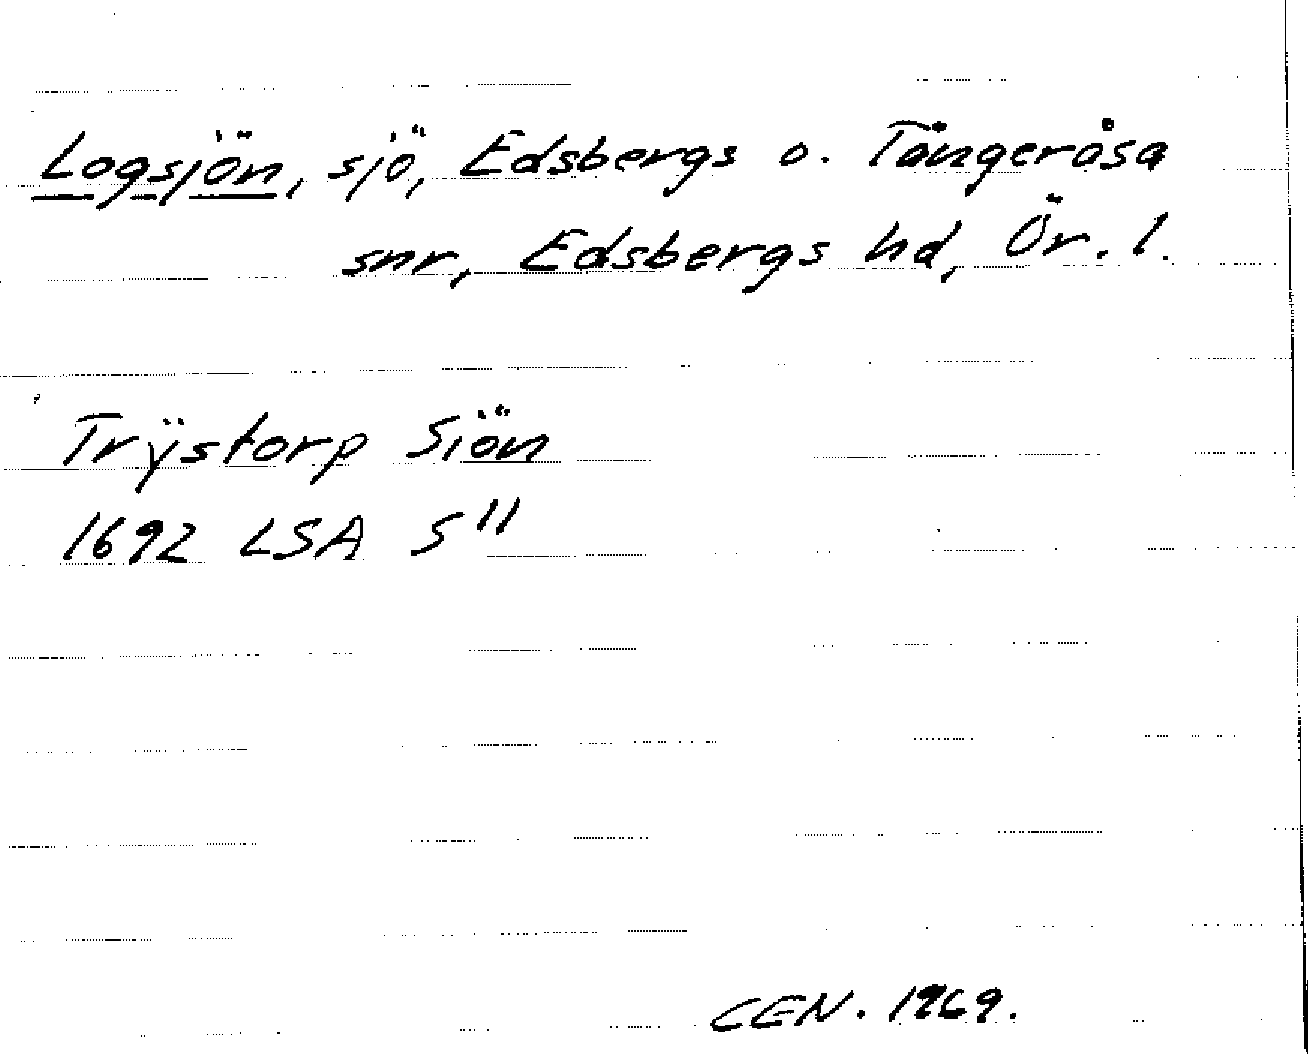 Logsjön, sjö, Edsbergs o. Tångeråsa
snr, Edsbergs hd, Ör. l.
Trÿstorp Siön
1692 LSA S 11
CEN. 1969.